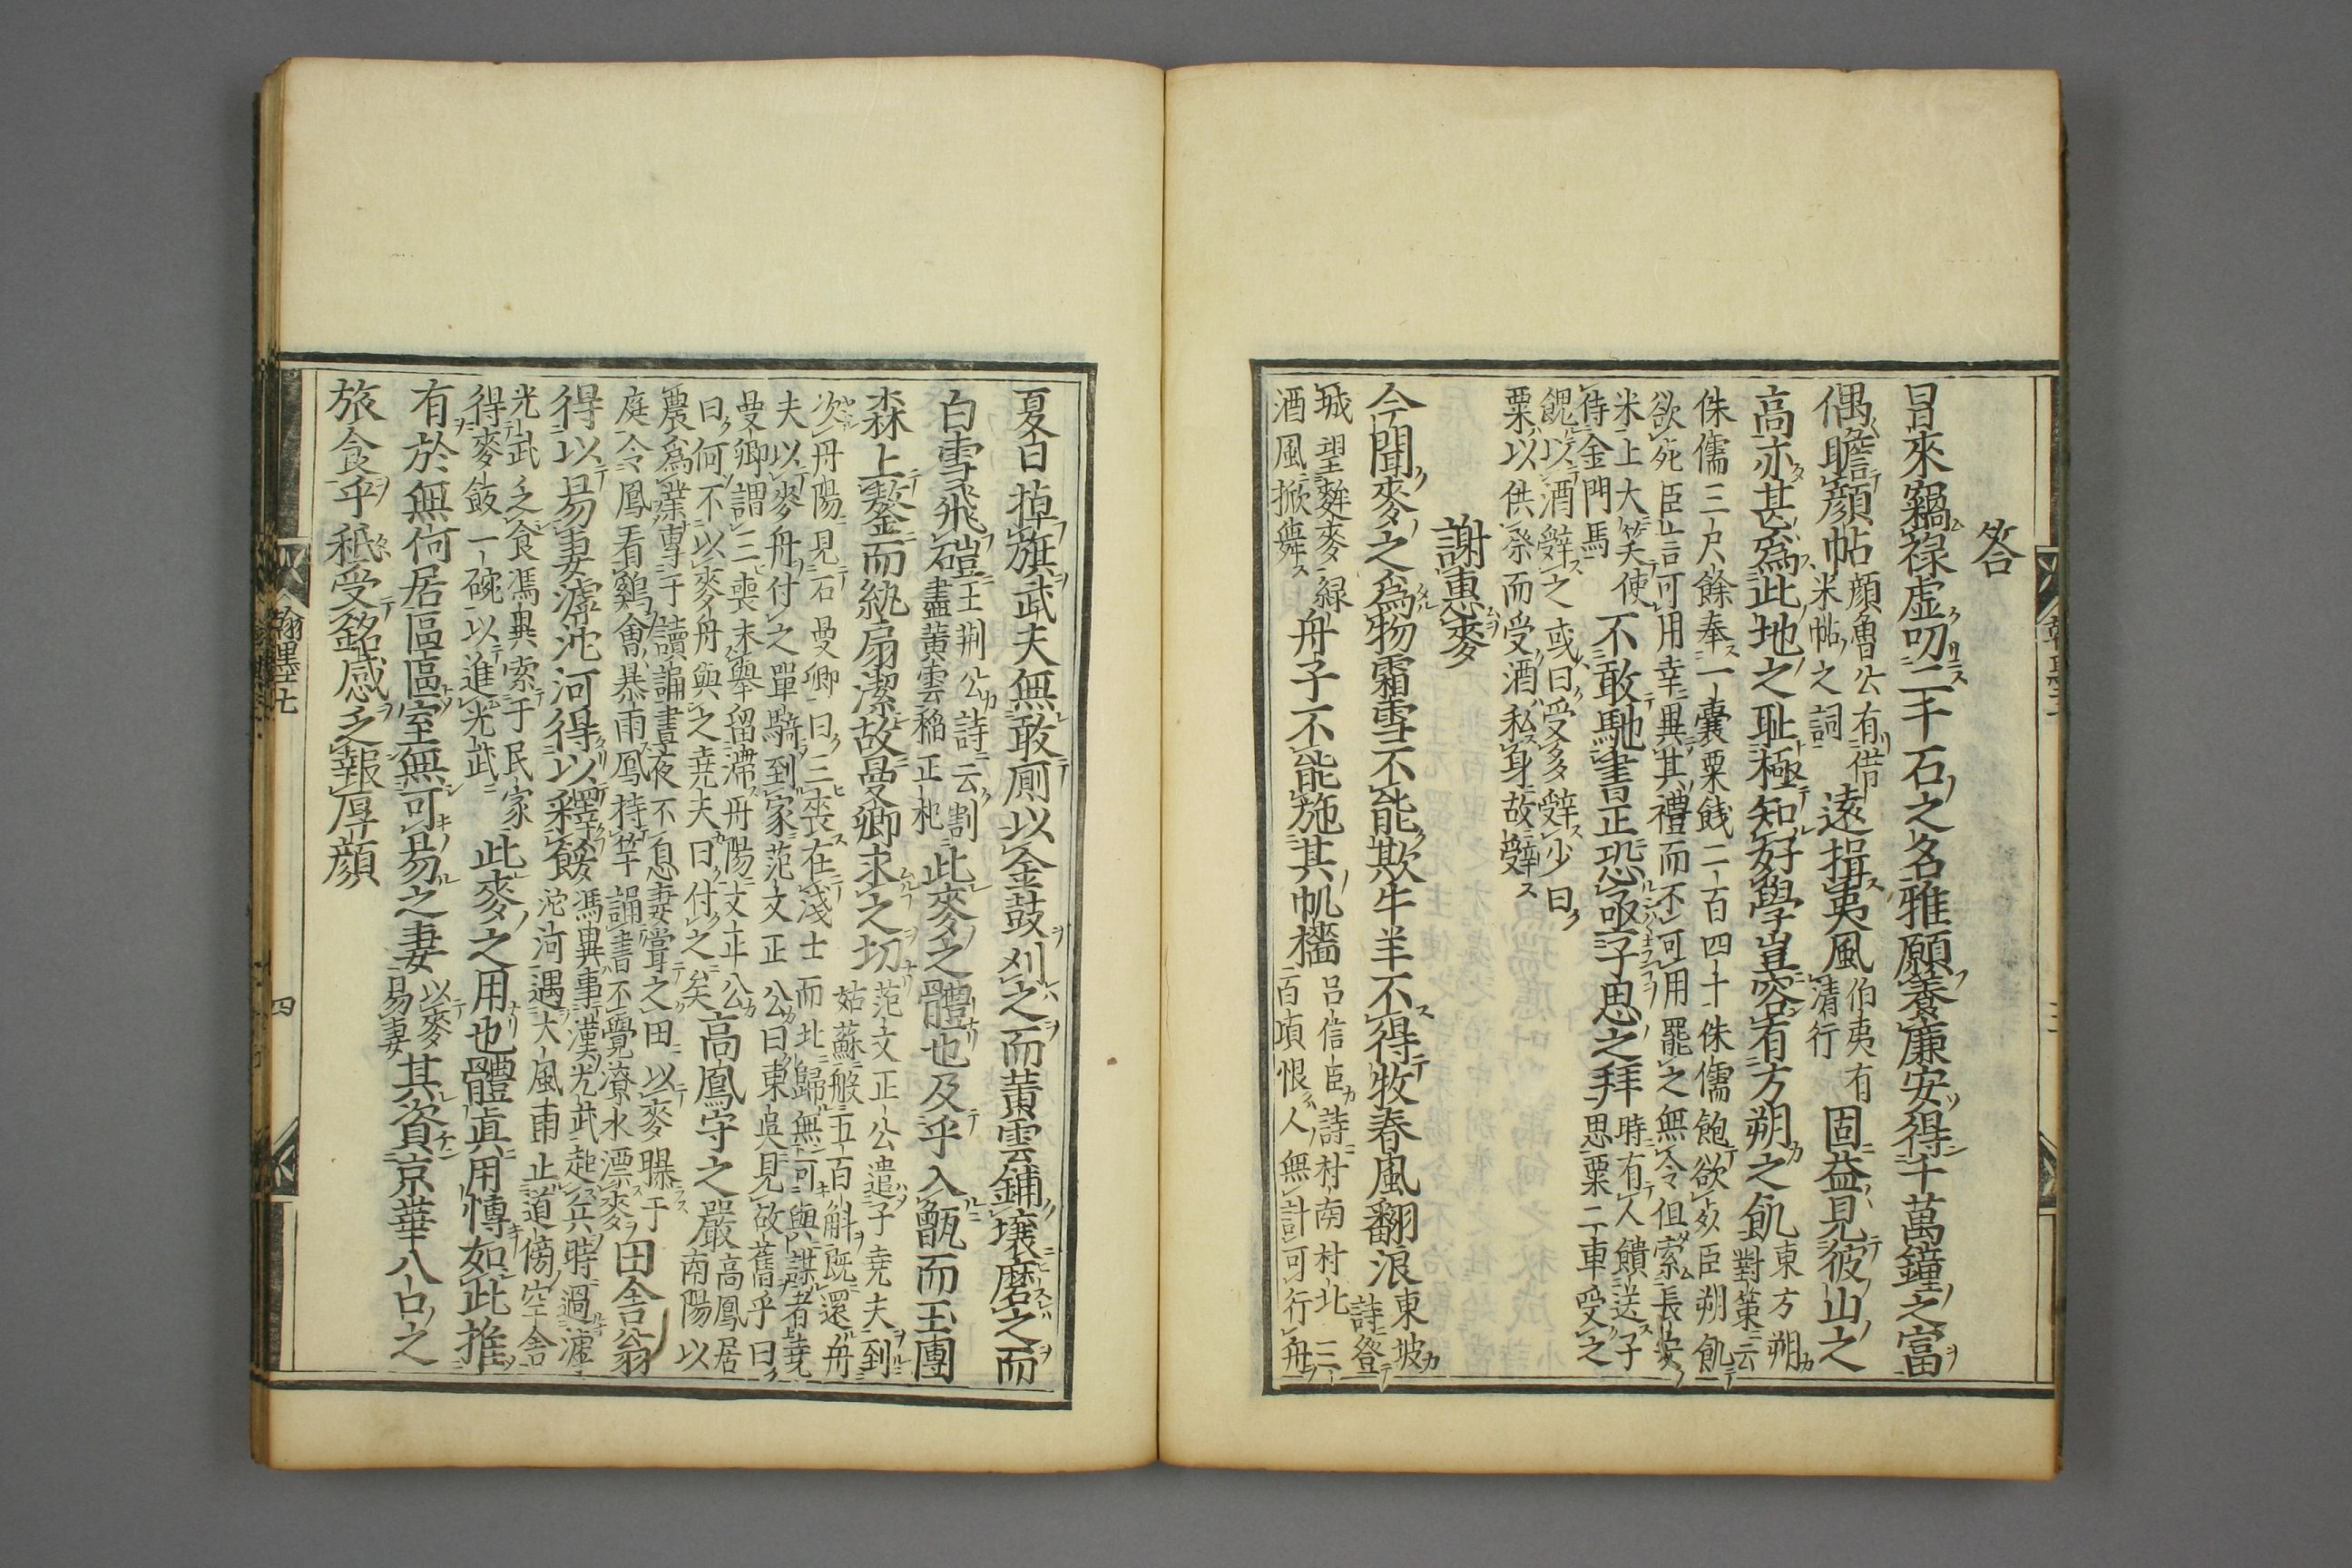 答
日來竊祿虛叨二千石之名雅願養廉安得千萬鐘之富
偶瞻顏帖顏魯公有借米帖之詞遠揖夷風伯夷有清行固益見彼山之
高亦甚爲此地之耻極知好學豈容有方朔之飢東方朔對策云
侏儒三尺餘奉一囊粟餞二百四十侏儒飽欲死臣朔飢
欲死臣言可用幸異其禮而不可用罷之無令但索長安
米上大笑使待金門馬不敢馳書正恐亟子思之拜時有人饋送子思粟二車受之
餽以酒辤之或曰受多辤少曰
粟以供祭而受酒私身故辤
謝惠麥
今聞麥之爲物霜雪不能欺牛羊不得牧春風翻浪東坡詩登
城望麰麥緑
酒風掀舞舟子不能施其帆檣呂信臣詩村南村北三二百頃恨人無計可行舟
夏日掉旗武夫無敢廁以金鼓刈之而黃雲鋪壤磨之而
白雪飛磑王荆公詩云割盡黃雲稲正杝此麥之體也及乎入甑而玉團
森上鏊而紈扇潔故曼卿求之切范文正公遣子堯夫到姑蘇般五百斛既還舟
次丹陽見石曼卿曰三喪在淺士而北歸無可與謀者堯
夫以麥舟付之單騎到家范文正公曰東吳見故舊乎曰
曼卿謂三喪未舉留滯丹陽文正公
曰何不以麥舟與之堯夫曰付之矣高鳳守之嚴高鳳居南陽以
農爲業專于讀誦晝夜不息妻嘗之田以麥曝于
庭令鳳看鷄會暴雨鳳持竿誦書不覺潦水漂麥田舍翁
得以易妻滹沱河得以釋餒馮異事漢光武起兵時過滹沱河遇大風雨止道傍空舍
光武乏食馮異索于民家
得麥飯一碗以進光武此麥之用也體眞用愽如此推
有於無何居區區室無可易之妻以麥易妻其資京華八口之
旅食乎秪受銘感乏報厚顔
翰墨七
四